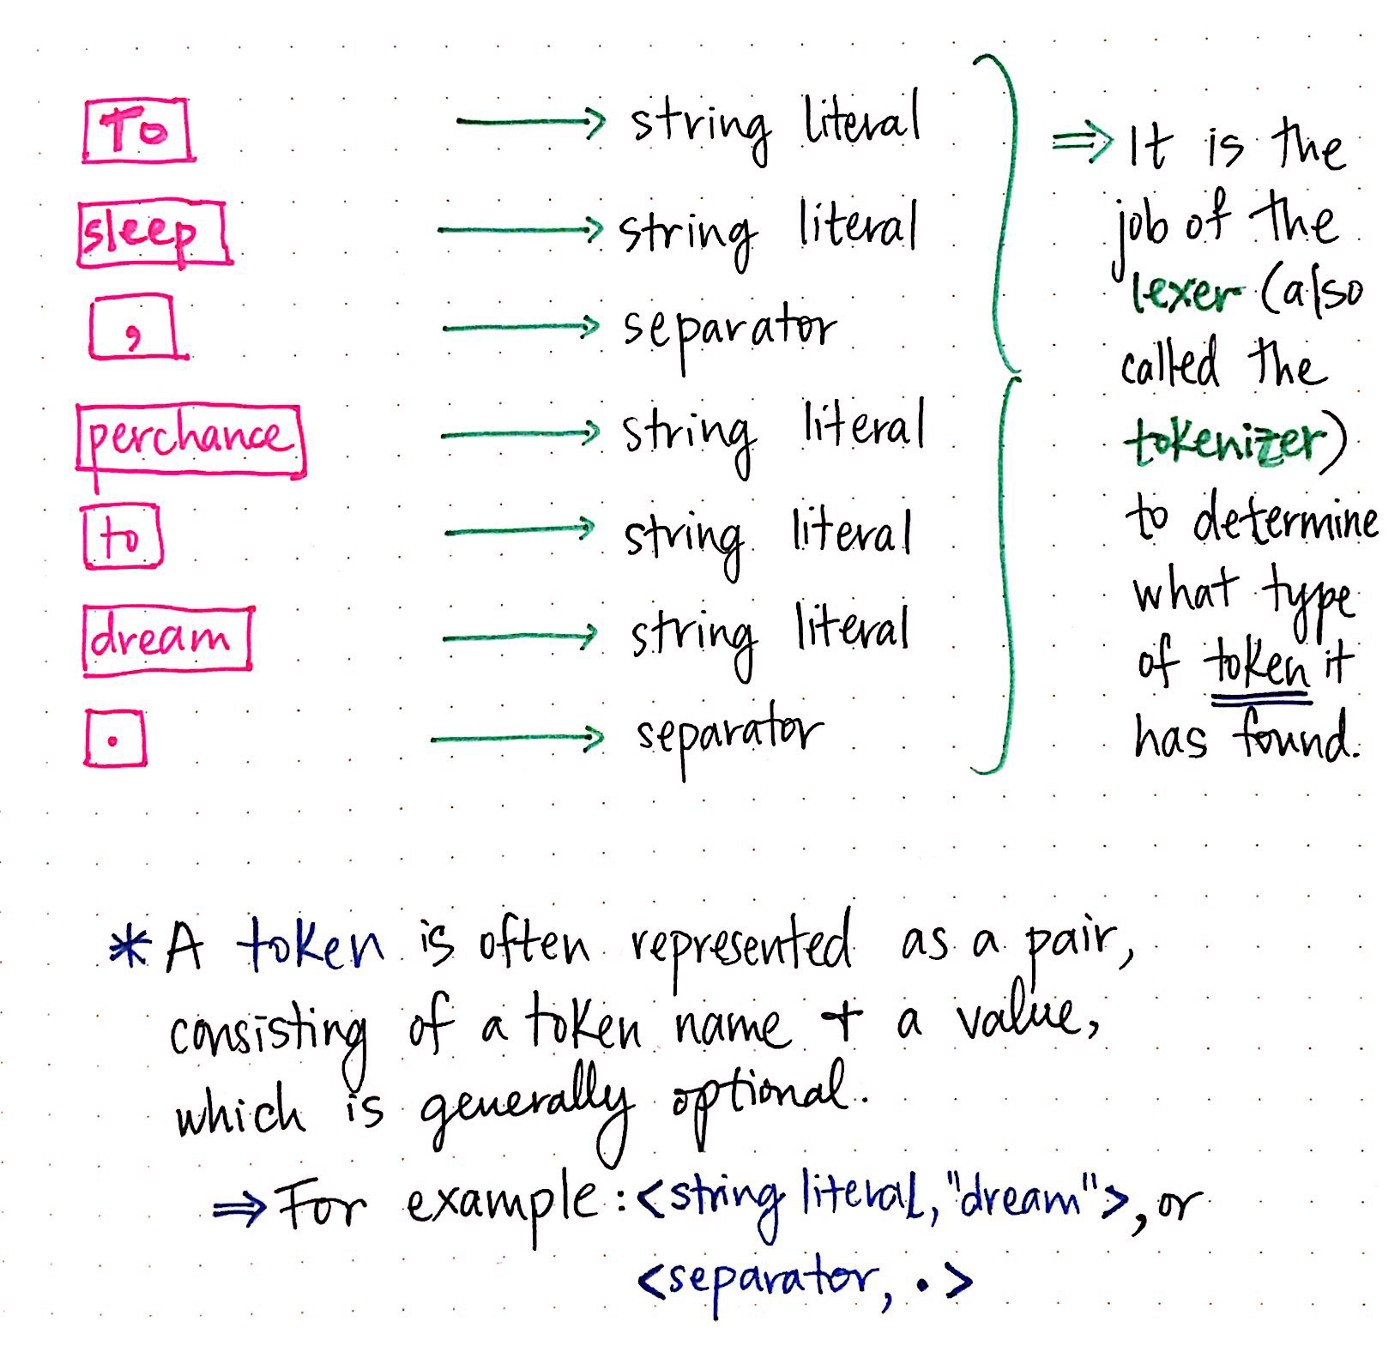 To → string literal
sleep → string literal
, → separator
perchance → string literal
to → string literal
dream → string literal
. → separator
⇒ It is the
job of the
lexer (also
called the
tokenizer)
to determine
what type
of token it
has found.
* A token is often represented as a pair,
consisting of a token name + a value,
which is generally optional.
⇒ For example: <string literal, "dream">, or
<separator, .>